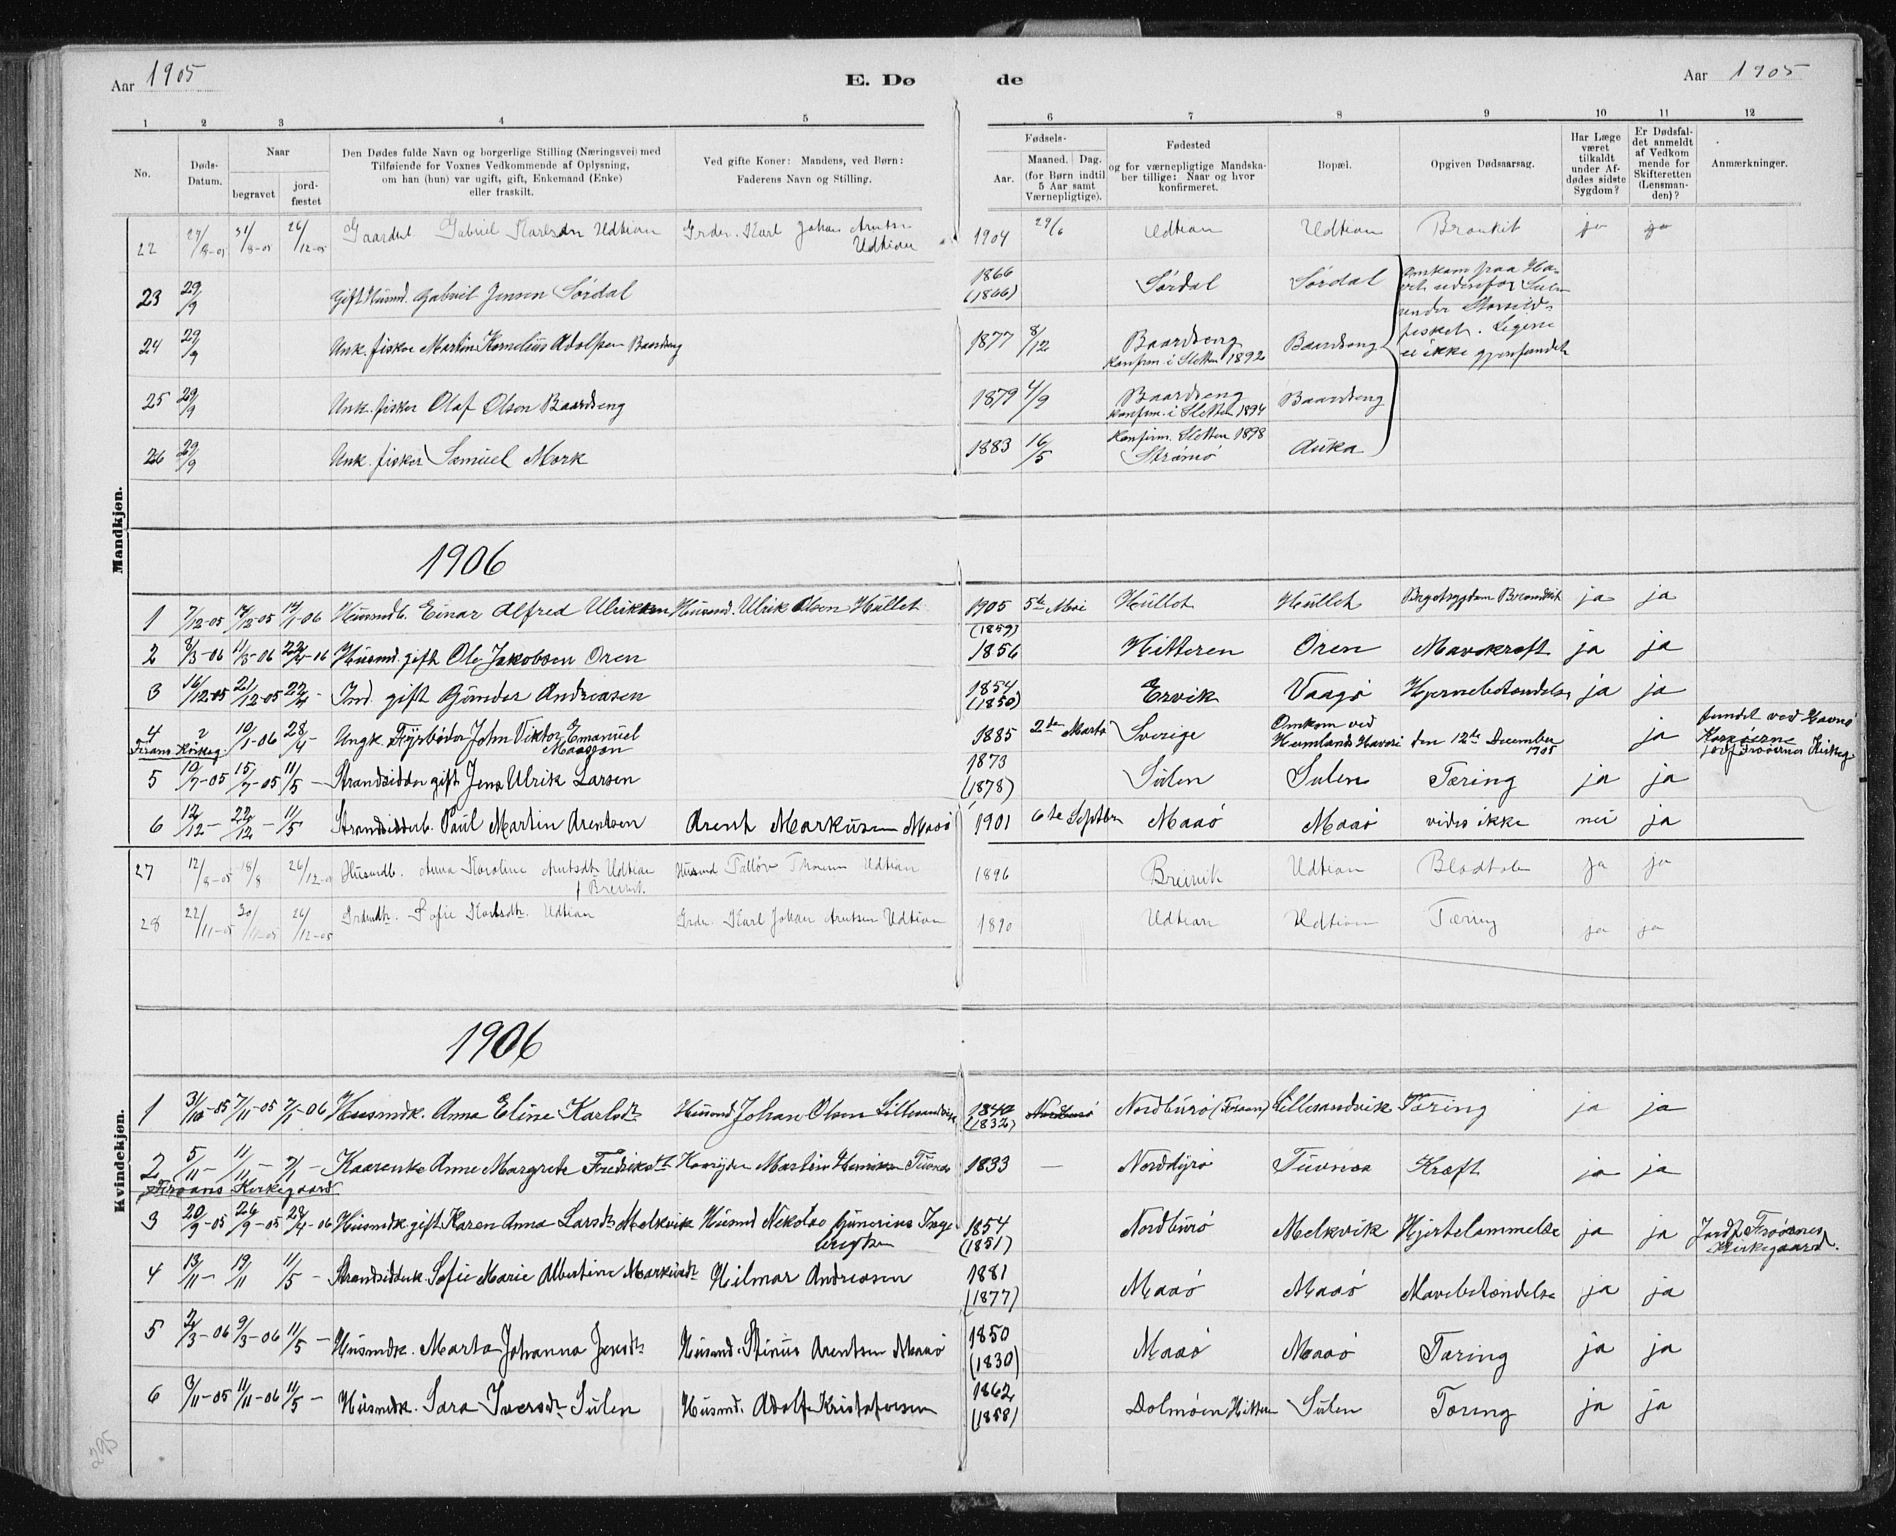 Aar 1905
E. Dø de
Aar 1905
1 2 3 4 5 6 7 8 9 10 11 12
No. Døds-Datum. Naar begravet jordfæstet
Den Dødes fulde Navn og borgerlige Stilling (Næringsvei) med
Tilføiende for Voxnes Vedkommende af Oplysning,
om han (hun) var ugift, gift, Enkemand (Enke)
eller fraskilt.
Ved gifte Koner: Mandens, ved Børn:
Faderens Navn og Stilling.
Fødsels-
Aar. Maaned. Dag.
(for Børn indtil
5 Aar samt
Værnepligtige).
Fødested
og for værnepligtige Mandska-
ber tillige: Naar og hvor
konfirmeret.
Bopæl.
Opgiven Dødsaarsag.
Har Læge
været
tilkaldt
under Af-
dødes sidste
Sygdom?
Er Dødsfal-
det anmeldt
af Vedkom
mende for
Skifteretten
(Lensman-
den)?
Anmærkninger.
Mandkjøn.
22 /8-05 31/8-05 26/12-05 Gaardbr. Gabriel Karlsen Udtian Grdbr. Karl Johan Arntsen Udtian 1904 29/6 Udtian Udtian Bronkit ja ja
23 29/9 Gift Husmd. Gabriel Jensen Sørdal 1866 (1866) Sørdal Sørdal Omkom paa Ha-
vet udenfor Sulen
under Storsild-
fisket. Ligene
er ikke gjenfundet
24 29/9 Unk. fisker Martin Kornelius Adolfsen Baardseng 1877 8/12 Baardseng Konfirm. i Sletten 1892 Baardseng
25 29/9 Unk. fisker Olaf Olsen Baardseng 1879 4/9 Baardseng Konfirm. i Sletten 1894 Baardseng
26 29/9 Unk. fisker Samuel Mork 1883 16/5 Konfirm. Sletten 1898 Strømø Auka
1906
1 7/12-05 17/12-05 /1-06 Husmdb. Einar Alfred Ulriksen Husmd. Ulrik Olsen Hullet 1905 5te Mai Hullet Hullet Brystsygdom Bronchit ja ja
2 8/3-06 11/3-06 22/4-06 Husmd. gift Ole Jakobsen Oren (1859) 1856 Hitteren Oren Mavekræft ja ja
3 16/12-05 21/12-05 22/4- Ind. gift Gunder Andreasen 1854 (1850) Ervik Vaagø Hjernebetændelse ja ja
4 ? 10/1-06 28/4- Ungk. Fyrbøder John Viktor Emanuel Maasson 1885 2den Marts Sverige Omkom ved
Hemlands Havari den 12te December 1905 ja fundet ved Havnø
Froans Kirkeg.
jordf. Froøernes Kirkeg
5 19/7-05 15/7-05 11/5- Strandsidder gift Jens Ulrik Larsen 1873 (1878) Sulen Sulen Tæring ja ja
6 12/12- 22/12- 11/5 Strandsidderb. Paul Martin Arentsen Arent Markusen Maaø 1901 6te Septbr Maaø Maaø vides ikke nei ja
27 12/8-05 18/8 26/12-05 Husmdb. Anna Karoline Arntsdtr Udtian / Breivik. Husmd Udtian 1896 Breivik Udtian ja ja
28 22/11-05 30/11-05 26/12-05 Grdmdtr. Sofie Karlsdtr. Udtian Grdbr. Karl Johan Arntsen Udtian 1890 Udtian Udtian Tæring ja ja
1906
Kvindekjøn.
1 31/10-05 7/11-05 7/1-06 Husmdk. Anna Eline Karlsdtr Husmd. Johan Olsen Lillesandvik 1842 (1832) Nordburø Nordburø (Froan) Lillesandvik Tæring ja ja
2 5/11- 11/11- 7/1- Kaarenke Anne Margrete Fredriksdtr Martin Henriksen Tuvnes 1833 — Norddyrø Tuvnes Kræft ja ja
Froans Kirkegaard
3 20/9-05 26/9-05 28/4-06 Husmdk. gift Karen Anna Larsdtr Melkvik Husmd Nekolao Gunerius Inge
brigtsen 1854 (1851) Nordburø Melkvik Hjertelammelse ja ja Jordf. Froøernes
Kirkegaard.
4 13/11- 19/11 11/5- Strandsidderk. Sofie Marie Albertine Markusdtr Hilmar Andreasen 1881 (1877) Maaø Maaø Mavebetændelse ja ja
5 2/3-06 9/3-06 11/5- Husmdk. Marta Johanna Jensdtr Husmd. Stinus Arentsen Maaø 1850 (1830) Maaø Maaø Tæring ja ja
6 3/11-05 11/11-06 11/5- Husmdk. Sara Iversdtr Sulen Husmd. Adolf Kristofersen 1862 (1858) Dolmøen Hitteren Sulen Tæring ja ja
295